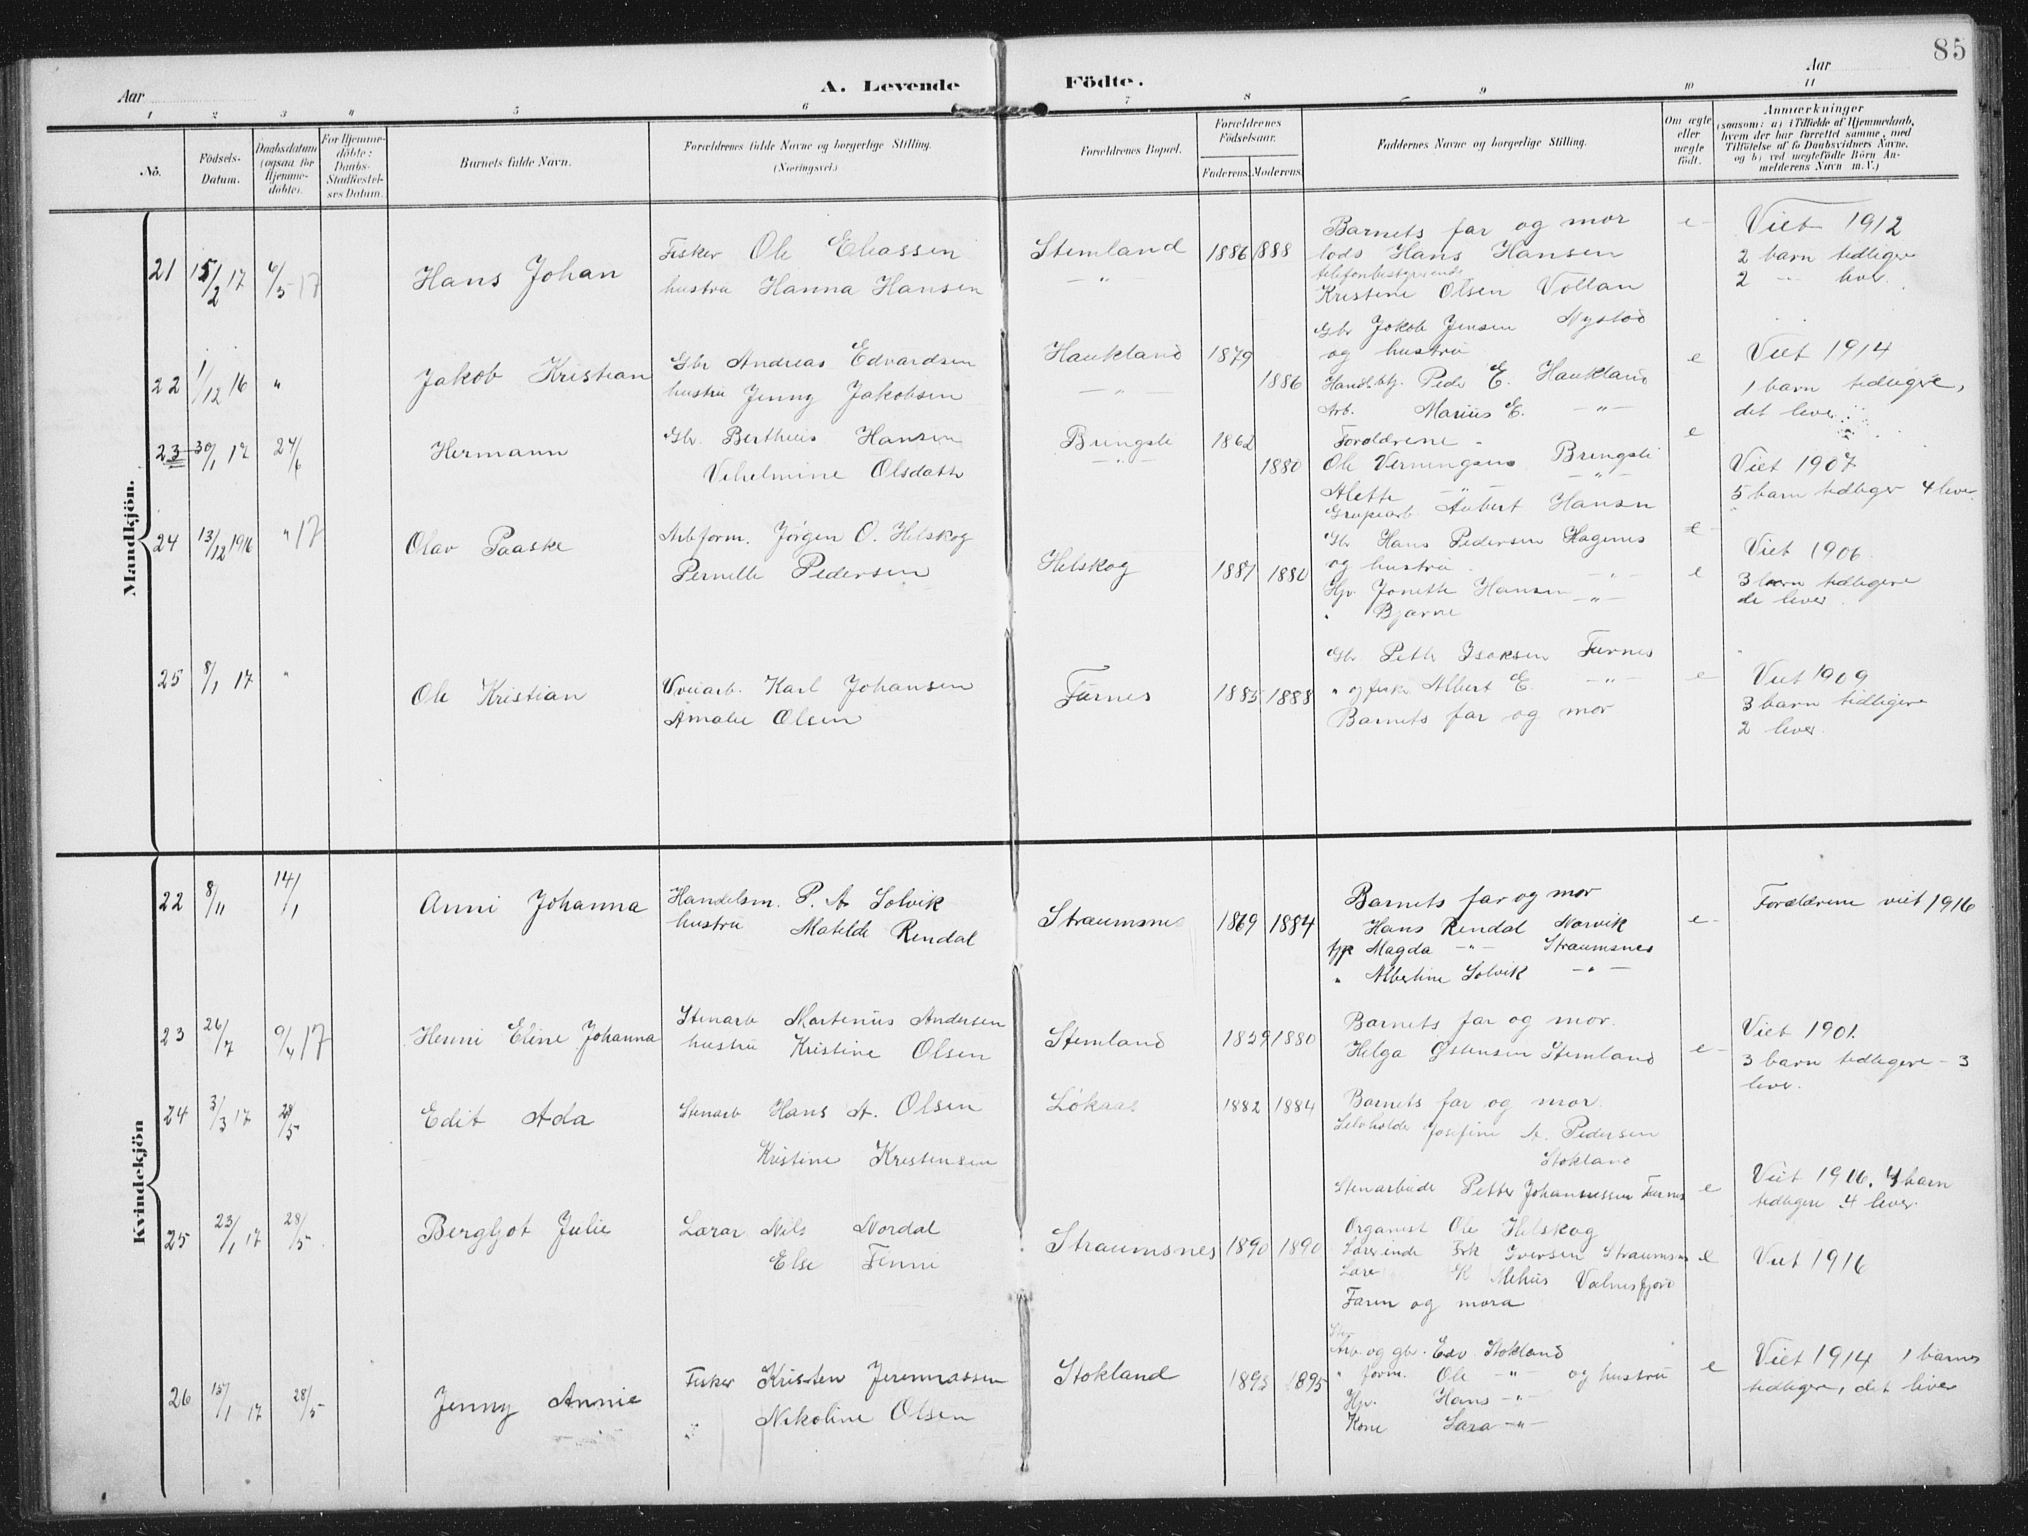 85
Aar
A. Levende Födte.
Aar
1 2 3 4 5 6 7 8 9 10 11
No.
Födsels-Datum.
Daabsdatum (ogsaa for Hjemme-döbte).
For Hjemme-döbte: Daabs-Stadfæstel-ses Datum.
Barnets fulde Navn.
Forældrenes fulde Navne og borgerlige Stilling.
(Næringsvei.)
Forældrenes Bopæl.
Forældrenes Födselsaar.
Faderens. Moderens.
Faddernes Navne og borgerlige Stilling.
Om ægte eller uægte födt.
Anmærkninger
(saasom: a) i Tilfælde af Hjemmedaab, hvem der har forrettet samme, med Tilföielse af to Daabsvidners Navne, og b) ved uægtefödte Börn An-melderens Navn m. V.)
Mandkjön.
21 15/2 17 6/5 17 Hans Johan
Fisker Ole Eliassen
hustru Hanna Hansen
Stemland 1886 1888
Barnets far og mor
lods Hans Hansen
telefonbestyrerinde
Kristine Olsen Vollan
e
Viet 1912
2 barn tidligere
2 " lever.
22 1/12 16 " Jakob Kristian
Gbr Andreas Edvardsen
hustru Jenny Jakobsen
Haukland 1879 1886
Gbr Jakob Jensen Nystad
og hustru
Handlbtj. Peder E. Haukland
Arb. Marius E. —"—
e
Viet 1914
1 barn tidligere,
det lever
23 30/1 17 24/6 Hermann
Gbr. Berthius Hansen
Vilhelmine Olsdatter
Bringsli 1862 1880
Forældrene
Ole Verningsens Bringsli
Alette —"—
Grubearb Aubert Hansen
e
Viet 1907
5 barn tidliger 4 lever
24 13/12 1916 " 17 Olav Paaske
Arbform. Jørgen O. Helskog
Pernelle Pedersen
Helskog 1881 1880
Gbr Hans Pedersen Hagenes
og hustru
Hjv Jonette Hansen —"—
" Bjarne
e
Viet 1906
3 barn tidligere
de lever
25 8/1 17 " Ole Kristian
Veiarb. Karl Johansen
Amalie Olsen
Furnes 1885 1888
Gbr Petter Isaksen Furnes
" og fisk. Albert E. —"—
Barnets far og mor
e
Viet 1909
3 barn tidligere
2 lever.
Kvindekjön
22 8/11 14/1 Anni Johanna
Handelsm. P. A Solvik
hustru Matelde Rendal
Straumsnes 1869 1884
Barnets far og mor
Hans Rendal Narvik
Magda —"— Straumsnes
" Albertine Solvik —"—
e
Forældrene viet 1916
23 26/7 9/4 17 Henni Eline Johanna
Stenarb Martenius Andersen
hustru Kristine Olsen
Stemland 1859 1880
Barnets far og mor.
Helga Østensen Stemland
e
Viet 1901.
3 barn tidligere - 3
lever.
24 3/3 17 28/5 Edit Ada
Stenarb Hans A. Olsen
Kristine Kristensen
Løkaas 1882 1884
Barnets far og mor.
Selvholde Josefine A. Pedersen
Stokland
Stenarbeide Petter Johannessen Furnes
e
Viet 1916. 4 barn
tidligere 4 lever
25 23/1 17 28/5 Bergljot Julie
Lærar Nils Nordal
Else Finne
Straumsnes 1890 1890
Organist Ole Helskog
Lærerinde Frk Iversen Straumsnes
Lære K Mehus Valnesfjord
Faren og mora
e
Viet 1916
26 15/1 17 28/5 Jenny Annie
Fisker Kristen Jeremiassen
" Nikoline Olsen
Stokland 1893 1895
Arb og gbr. Edv. Stokland
" form. Ole —"— og hustru
Hjv. Hans —"—
Kone Sara —"—
e
Viet 1914 1 barn
tidligere, det lever